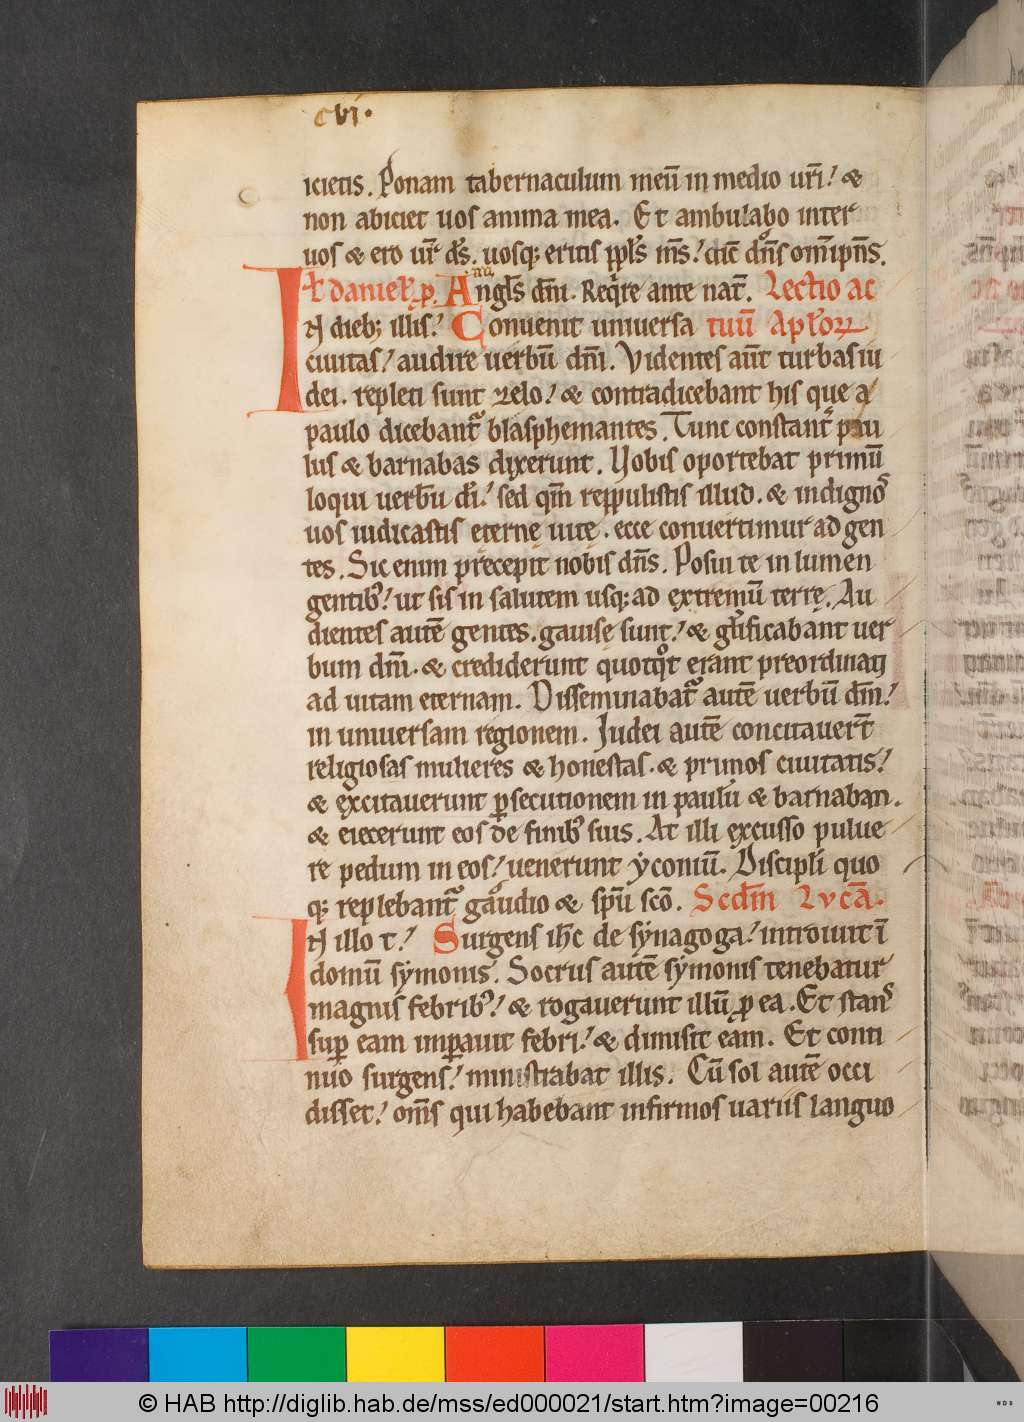 cvi.
icietis. Ponam tabernaculum meū in medio ur̄i! &
non abiciet uos anima mea. Et ambulabo inter
uos & ero ur̄ ds̄. uosq; eritis ppl̄s ms̄! dic̄ dn̄s om̄ipn̄s.
Daniel. Angl̄s dn̄i. Req̄re ante nat̄. Lectio ac
In dieb; illis! Conuenit uniuersa tuū Apl̄oꝝ
ciuitas! audire uerbū dn̄i. Videntes aūt turbas iu
dei. repleti sunt zelo! & contradicebant his que a
paulo dicebant̄ blasphemantes. Tunc constant̄ pau
lus & barnabas dixerunt. Vobis oportebat primū
loqui uerbū dī! sed qm̄ reppulistis illud. & indignos
uos iudicastis eterne uite. ecce conuertimur ad gen
tes. Sic enim precepit nobis dn̄s. Posui te in lumen
gentib; ! ut sis in salutem usq; ad extremū terrę. Au
dientes autē gentes. gauise sunt! & gl̄ificabant uer
bum dn̄i. & crediderunt quotqͦt erant preordinati
ad uitam eternam. Disseminabat̄ autē uerbū dn̄i!
in uniuersam regionem. Judei autē concitauer̄t
religiosas mulieres & honestas. & primos ciuitatis!
& excitauerunt ꝑsecutionem in paulū & barnaban.
& eiecerunt eos de finib; suis. At illi excusso pulue
re pedum in eos! uenerunt yconiū. Discipl̄i quo
q; replebant̄ gaudio & sp̄u sc̄o. Scd̄m Lvcā.
In illo t̄! Surgens ih̄c de synagoga! introiuit ī
domū symonis. Socrus autē symonis tenebatur
magnis febrib; ! & rogauerunt illū ꝓ ea. Et stans
suꝑ eam imꝑauit febri! & dimisit eam. Et conti
nuo surgens! ministrabat illis. Cū sol autē occi
disset! om̄s qui habebant infirmos uariis languo
© HAB http://diglib.hab.de/mss/ed000021/start.htm?image=00216